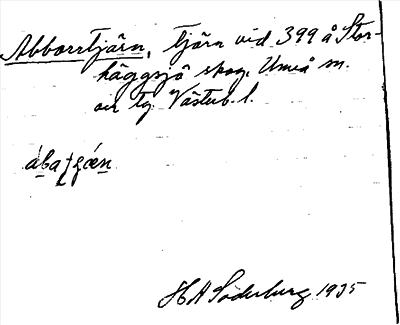 Abborrtjärn, tjärn vid 399 å Stor-
häggsjö skog, Umeå sn.
och tg Västerb. l.
HA Söderburg 1935